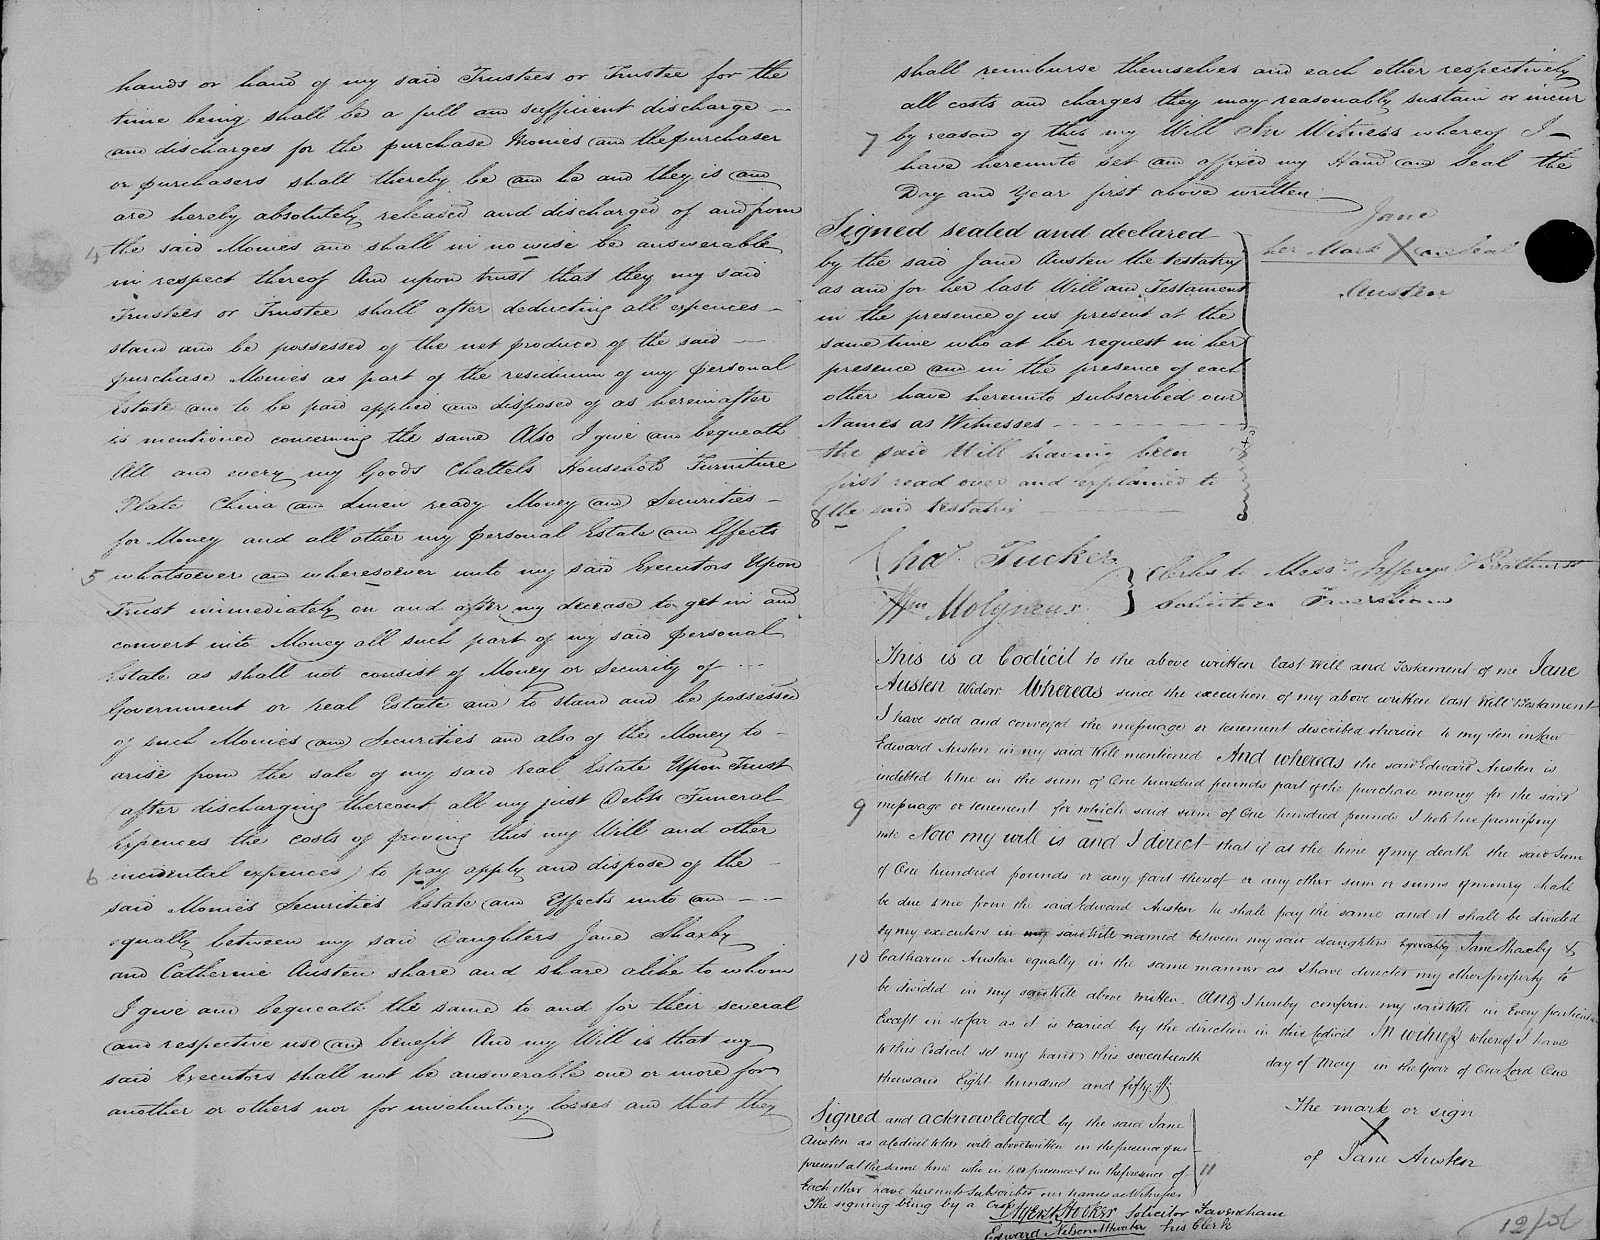 hands or hand of my said Trustees or Trustee for the
time being shall be a full and sufficient discharge
and discharges for the purchase Monies and the purchaser
or purchasers shall thereby be and he and they is and
are hereby absolutely released and discharged of and from
4 the said Monies and shall in no wise be answerable
in respect thereof And upon trust that they my said
Trustees or Trustee shall after deducting all expences
stand and be possessed of the net produce of the said
purchase Monies as part of the residuum of my personal
Estate and to be paid applied and disposed of as hereinafter
is mentioned concerning the same Also I give and bequeath
All and every my Goods Chattels Household Furniture
Plate China and Linen ready Money and Securities
for Money and all other my personal Estate and Effects
5 whatsoever and wheresoever unto my said Executors Upon
Trust immediately on and after my decease to get in and
convert into Money all such part of my said personal
Estate as shall not consist of Money or Security of
Government or real Estate and to stand and be possessed
of such Monies and Securities and also of the Money to
arise from the sale of my said real Estate Upon Trust
(after discharging thereout all my just Debts Funeral
Expences the costs of proving this my Will and other
6 incidental expences) to pay apply and dispose of the
said Monies Securities Estate and Effects unto and
equally between my said Daughters Jane Shaxby
and Catherine Austen share and share alike to whom
I give and bequeath the same to and for their several
and respective use and benefit And my Will is that my
said Executors shall not be answerable one or more for
another or others nor for involuntary losses and that they
shall reimburse themselves and each other respectively
all costs and charges they may reasonably sustain or incur
7 by reason of this my Will In Witness whereof I
have hereunto set and affixed my Hand and Seal the
Day and Year first above written
Jane
her Mark X and Seal
Austen
Signed sealed and declared
by the said Jane Austen the testatrix
as and for her last Will and Testament
in the presence of us present at the
same time who at her request in her
presence and in the presence of each
other have hereunto subscribed our
Names as Witnesses
the said Will having been
first read over and explained to
8 the said testatrix
Chas. Tucker
Wm Molyneux
Clerks to Messrs Jefferys & Bathurst
Solicitors Faversham
This is a Codicil to the above written last Will and Testament of me Jane
Austen Widow Whereas since the execution of my above written last Will & Testament
I have sold and conveyed the messuage or tenement described therein to my Son in law
Edward Austen in my said Will mentioned And whereas the said Edward Austen is
indebted to me in the sum of One hundred pounds part of the purchase money for the said
9 messuage or tenement for which said sum of One hundred pounds I hold his promissory
note Now my will is and I direct that if at the time of my death the said Sum
of One hundred pounds or any part thereof or any other sum or sums of money shall
be due to me from the said Edward Austen he shall pay the same and it shall be divided
by my executors in my said Will named between my said daughters Jane Shaxby &
10 Catharine Austen equally in the same manner as I have directed my other property to
be divided in my said Will above written. AND I hereby confirm my said Will in Every particular
Except in so far as it is varied by the direction in this Codicil In witness whereof I have
to this Codicil set my hand this seventeenth day of May in the Year of Our Lord One
thousand Eight hundred and fifty
Signed and acknowledged by the said Jane
Austen as a Codicil to her will above written in the presence of us
present at the same time who in her presence & in the presence of
11
Each other have hereunto subscribed our names as Witnesses
The signing being by a Cross
The mark or sign
X
of Jane Austen
Solicitor Faversham
Edward Nelson his Clerk
12/